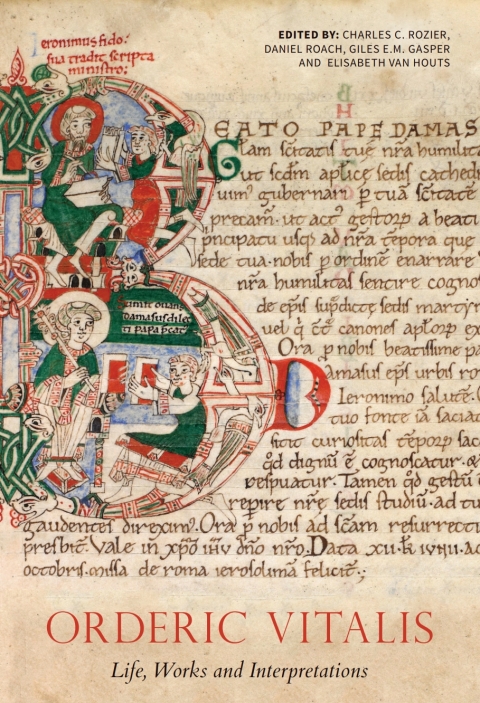 EDITED BY: CHARLES C. ROZIER,
DANIEL ROACH, GILES E.M. GASPER
AND ELISABETH VAN HOUTS
Ieronimus fido:
sua tradit scripta
ministro:
BEATO PAPE DAMAS
Glam sc̄itatis tuę nr̄a humilita
ut scdm aplice sedis cathed
gubernari ꝑ tuā sc̄itate
precam̄. ut act̄ gestoꝝ a beati
pncipatu usqꝫ ad nr̄a tēpora que
sede tua. nobis ꝑ ordinē enarrare
nr̄a humilitas sentire cogno
de ep̄is sup̄dictę sedis martyr
uel q̄ canones aploꝝ ex
Ora ꝓ nobis beatissime pa
Damasus ep̄s urbis ro
Ieronimo salutē.
tuo fonte sacia
sitit curiositas tēpoꝝ sac
qd dignū ē cognoscatur.
respuatur. Tamen qd gestū
repire nrę sedis studiū. ad tu
gaudentes direxim̄. Ora ꝓ nobis ad sc̄am resurrecti
presbit̄. Vale in xp̄o ih̄u dn̄o nr̄o. Data xii.
octobris. missa de roma ierosolima feliciť.
ORDERIC VITALIS
Life, Works and Interpretations